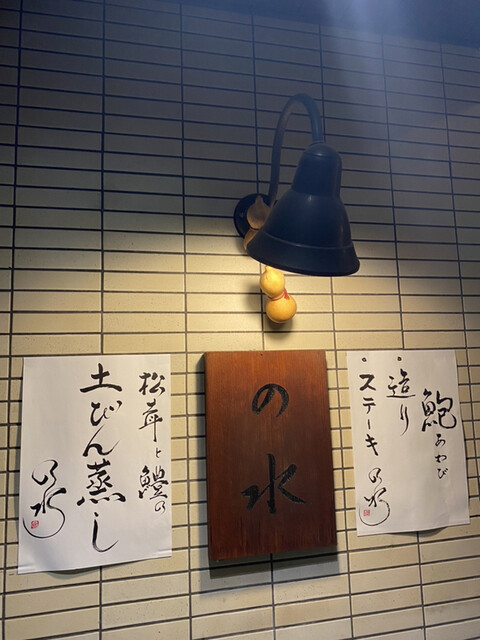 鮑あわび
・造り
・ステーキ
の水
の水
松茸と鱧の
土びん蒸し
の水